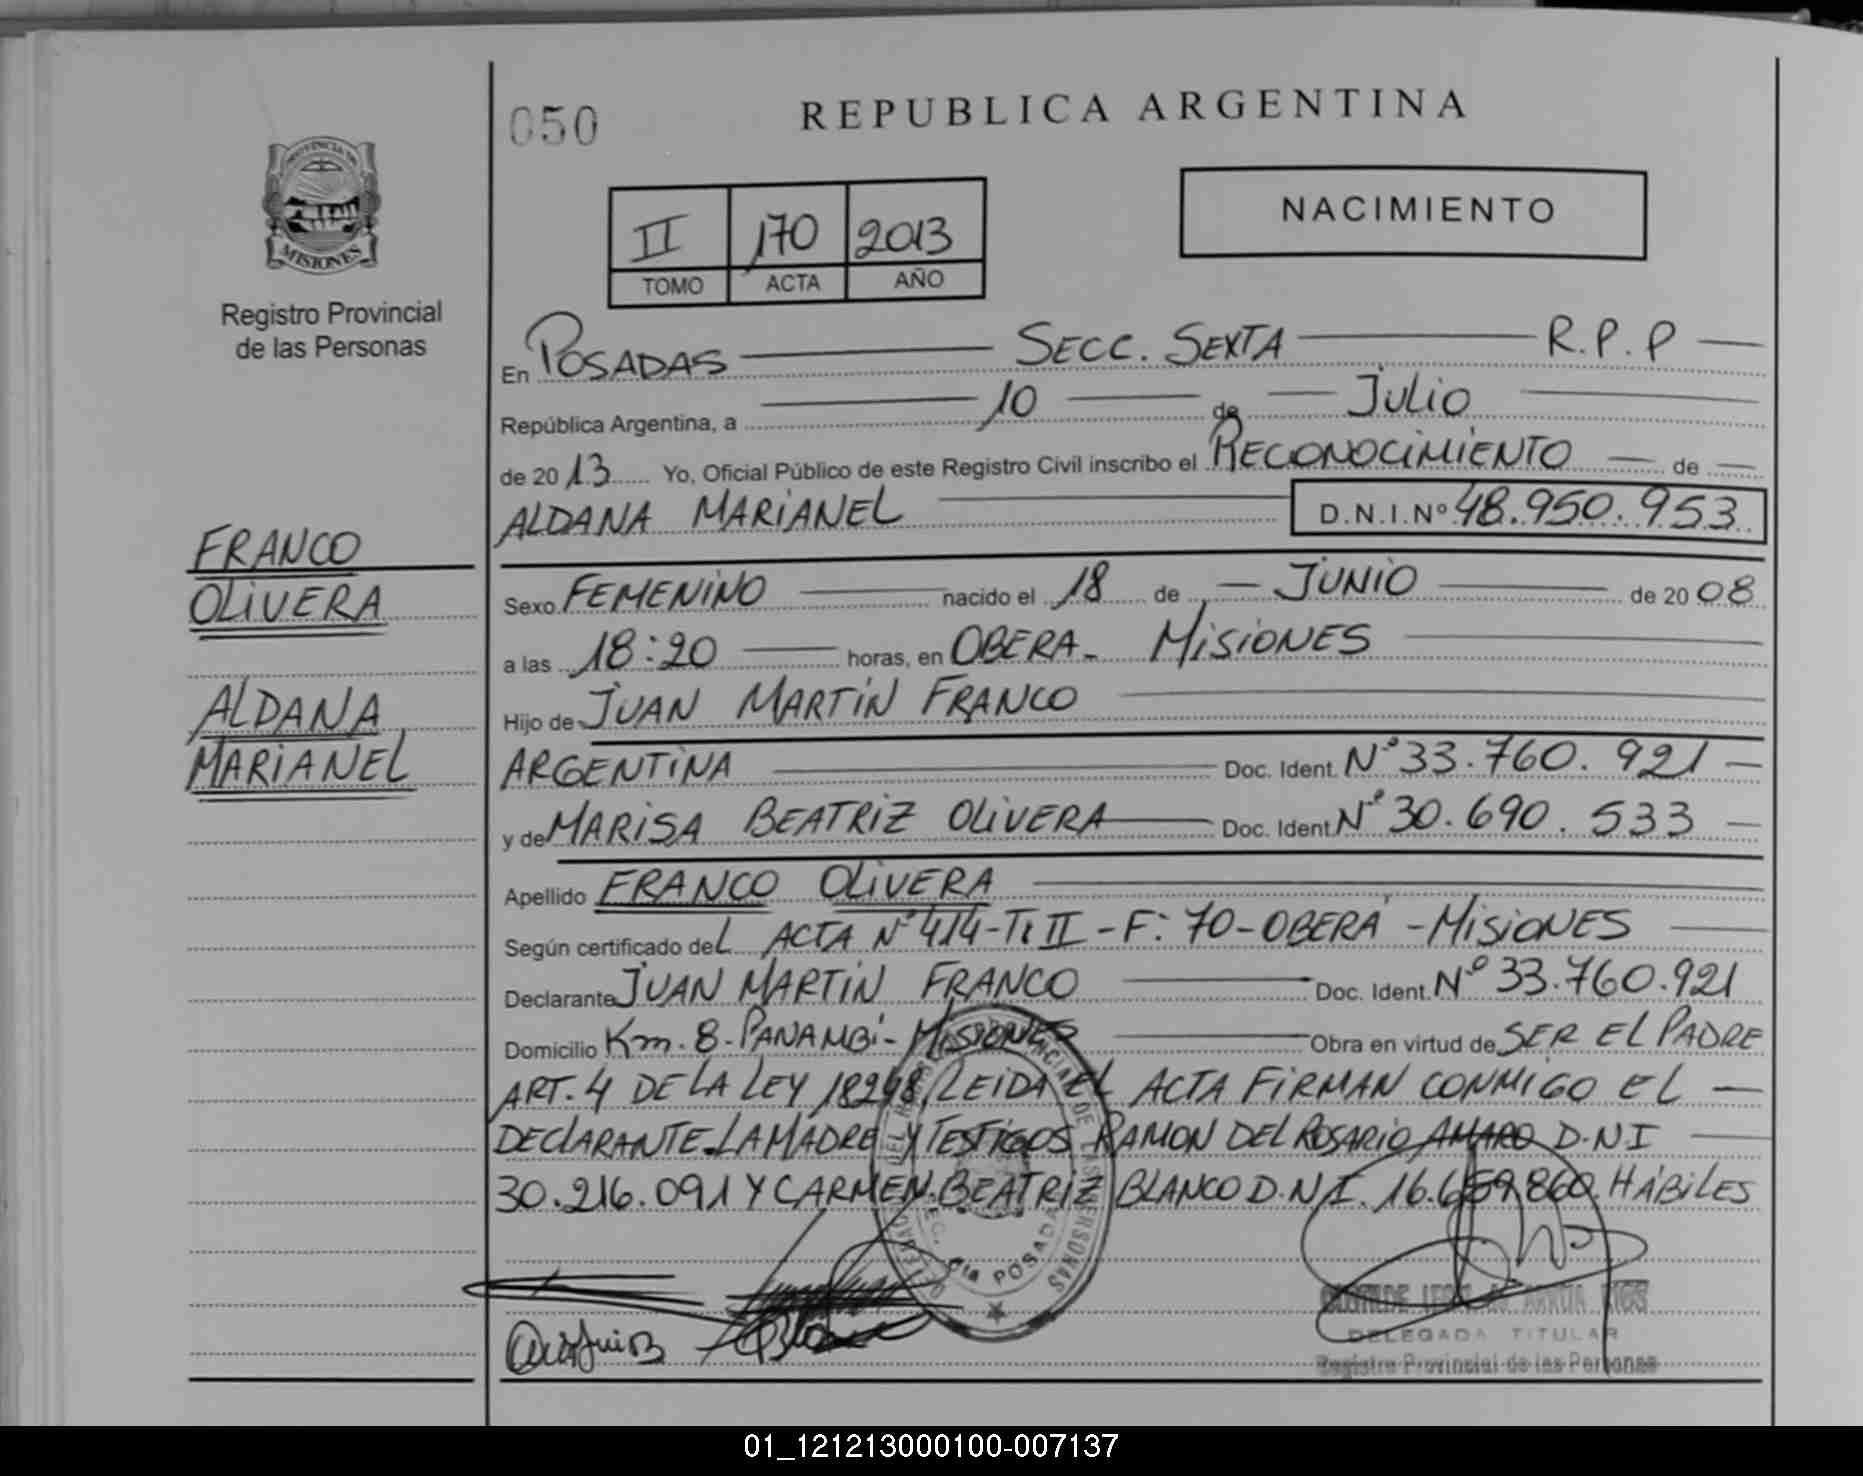 050
REPUBLICA ARGENTINA
PROVINCIA DE
MISIONES
Registro Provincial
de las Personas
II 170 2013
TOMO ACTA AÑO
NACIMIENTO
En POSADAS SECC. SEXTA R.P.P
República Argentina, a 10 de JULIO
de 2013 Yo, Oficial Público de este Registro Civil inscribo el RECONOCIMIENTO de
ALDANA MARIANEL D.N.I.Nº 48.950.953
FRANCO
OLIVERA
ALDANA
MARIANEL
Sexo FEMENINO nacido el 18 de JUNIO de 2008
a las 18:20 horas, en OBERA - MISIONES
Hijo de JUAN MARTÍN FRANCO
ARGENTINA Doc. Ident. Nº 33.760.921
y de MARISA BEATRIZ OLIVERA Doc. Ident. Nº 30.690.533
Apellido FRANCO OLIVERA
Según certificado del ACTA Nº 414-T: II - F: 70 - OBERÁ - MISIONES
Declarante JUAN MARTÍN FRANCO Doc. Ident. Nº 33.760.921
Domicilio Km. 8 - PANAMBÍ - MISIONES Obra en virtud de SER EL PADRE
ART. 4 DE LA LEY 18248, LEIDA EL ACTA FIRMAN CONMIGO EL
DECLARANTE. LA MADRE Y TESTIGOS RAMON DEL ROSARIO AMARO D.N.I
30.216.091 Y CARMEN BEATRIZ BLANCO D.N.I. 16.659.860. HÁBILES
6ta POSADAS
DELEGADA TITULAR
Registro Provincial de las Personas
01_121213000100-007137